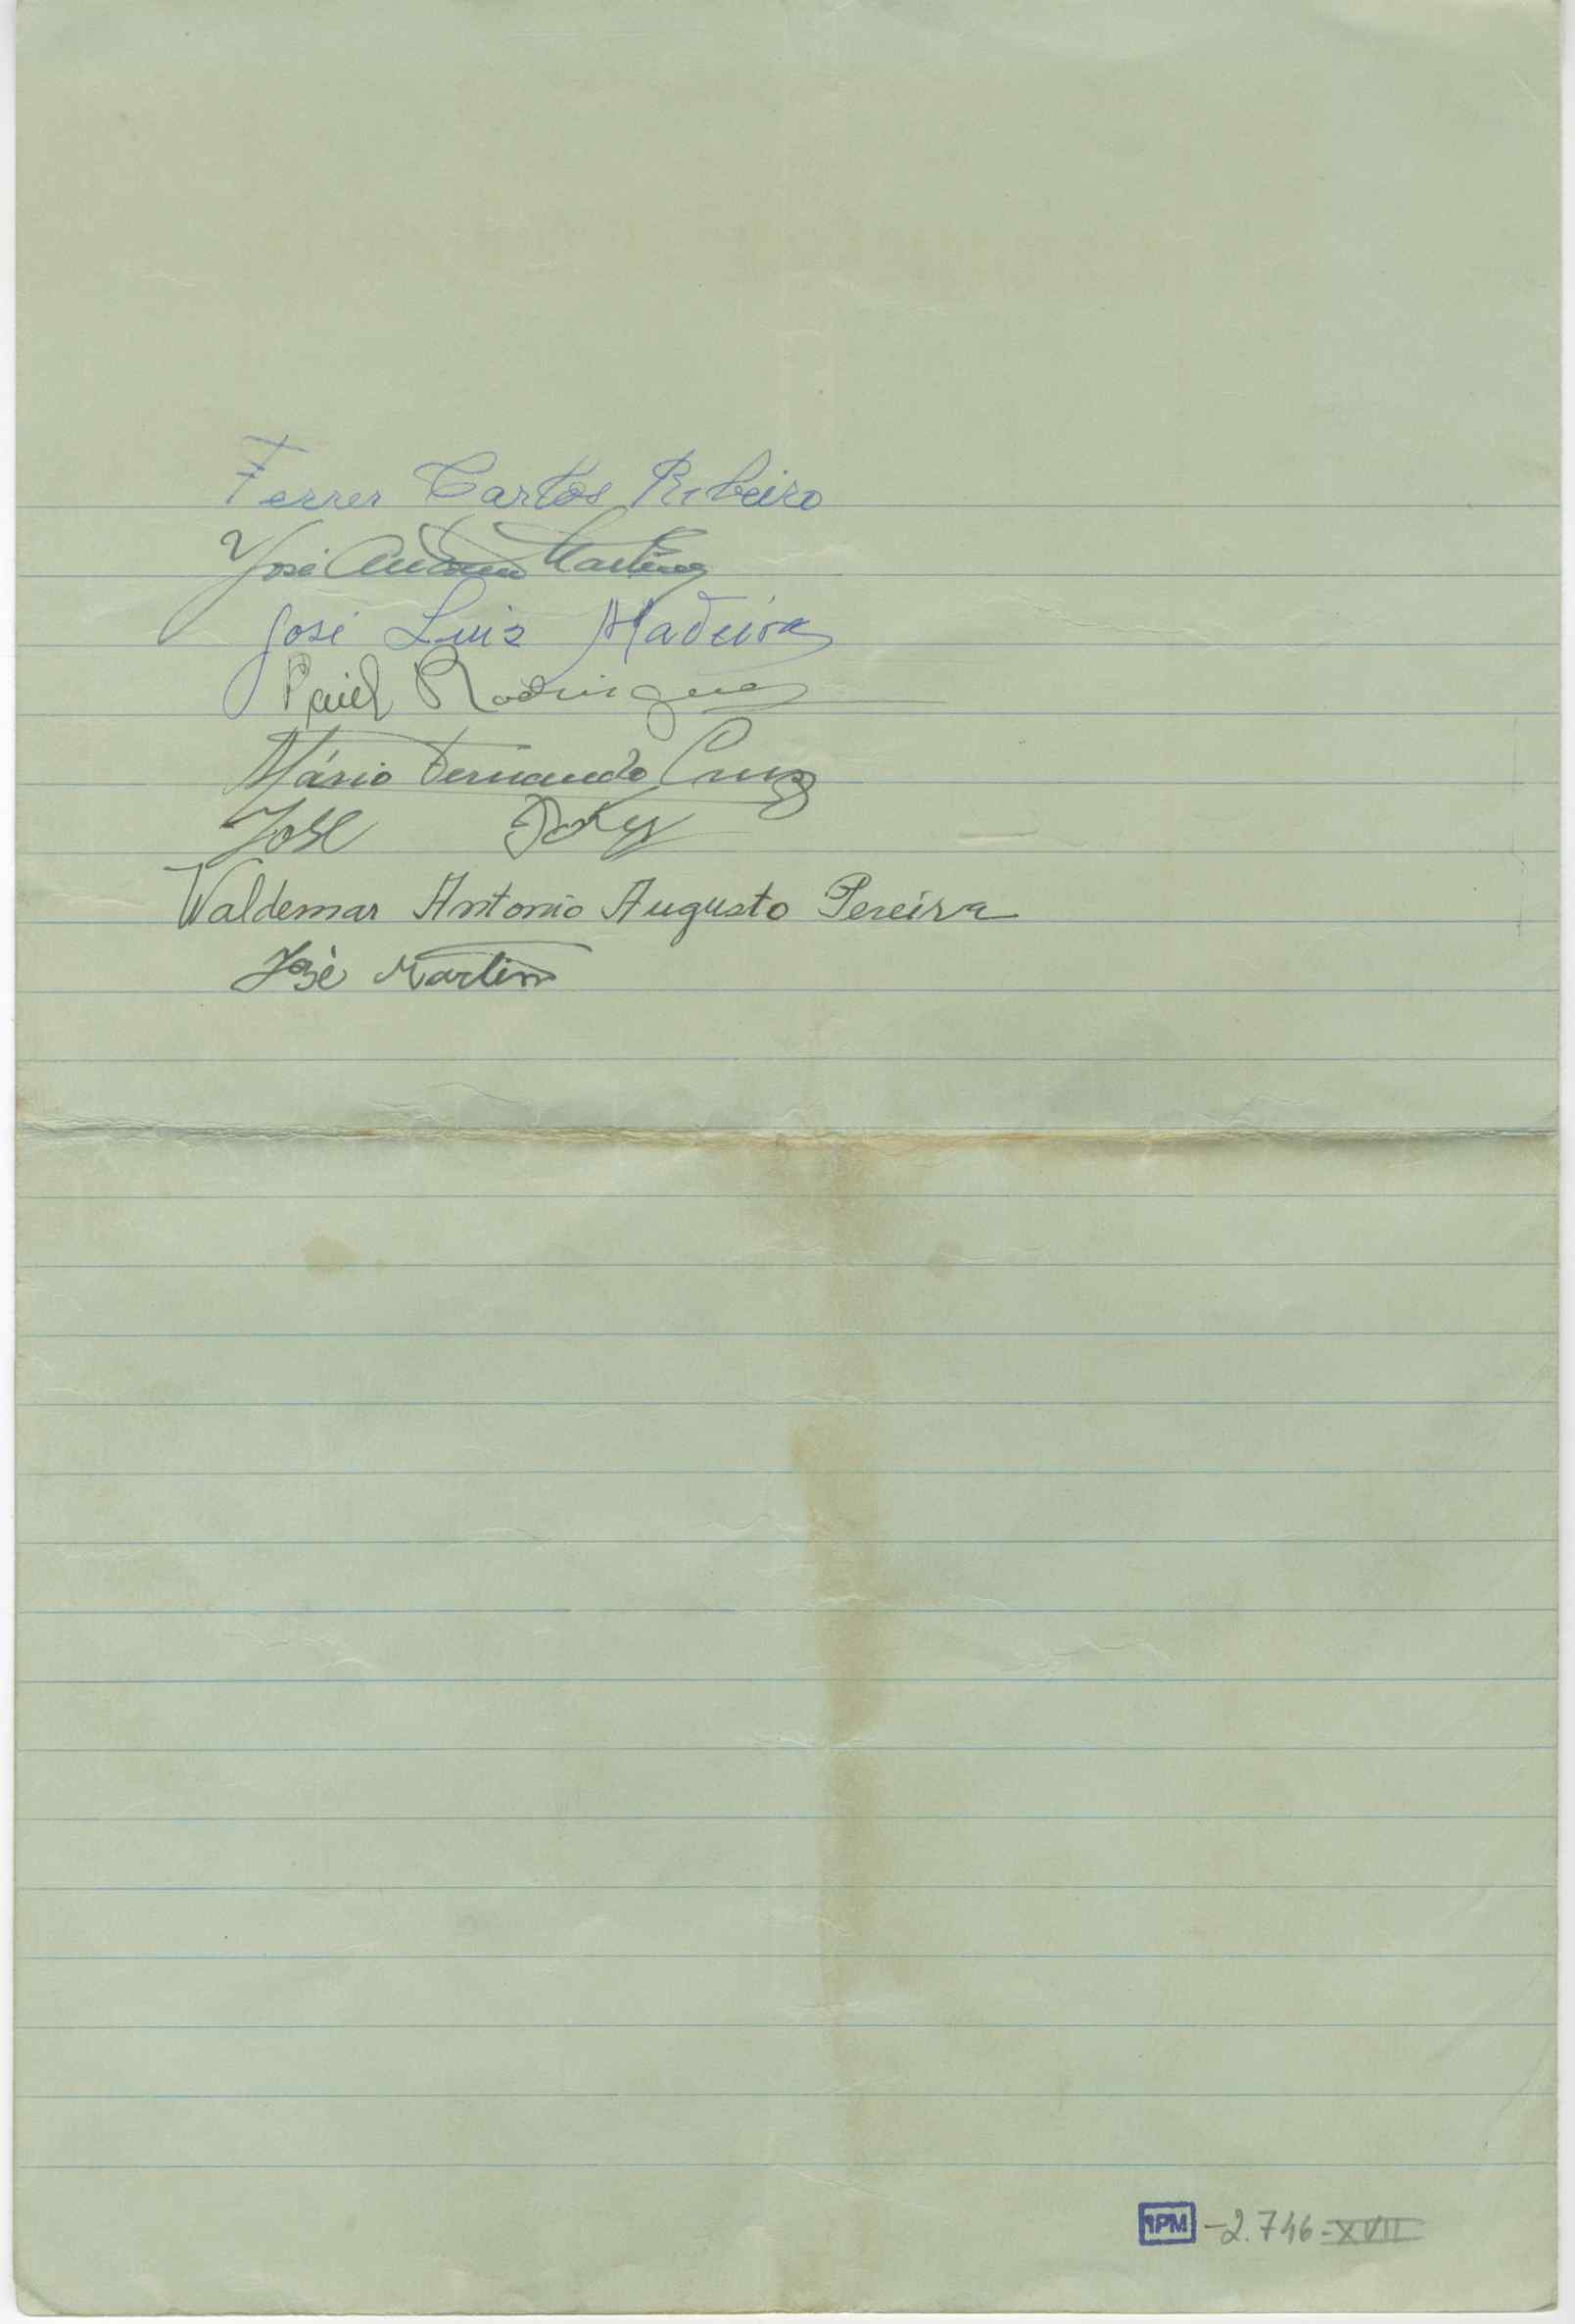 Ferrer Carlos Ribeiro
José Antonio Martins
José Luis Madeira
Raúl Rodrigues
Mário Fernando Cruz
José
Waldemar Antonio Augusto Pereira
José Martins
IPM -2.746-XVII